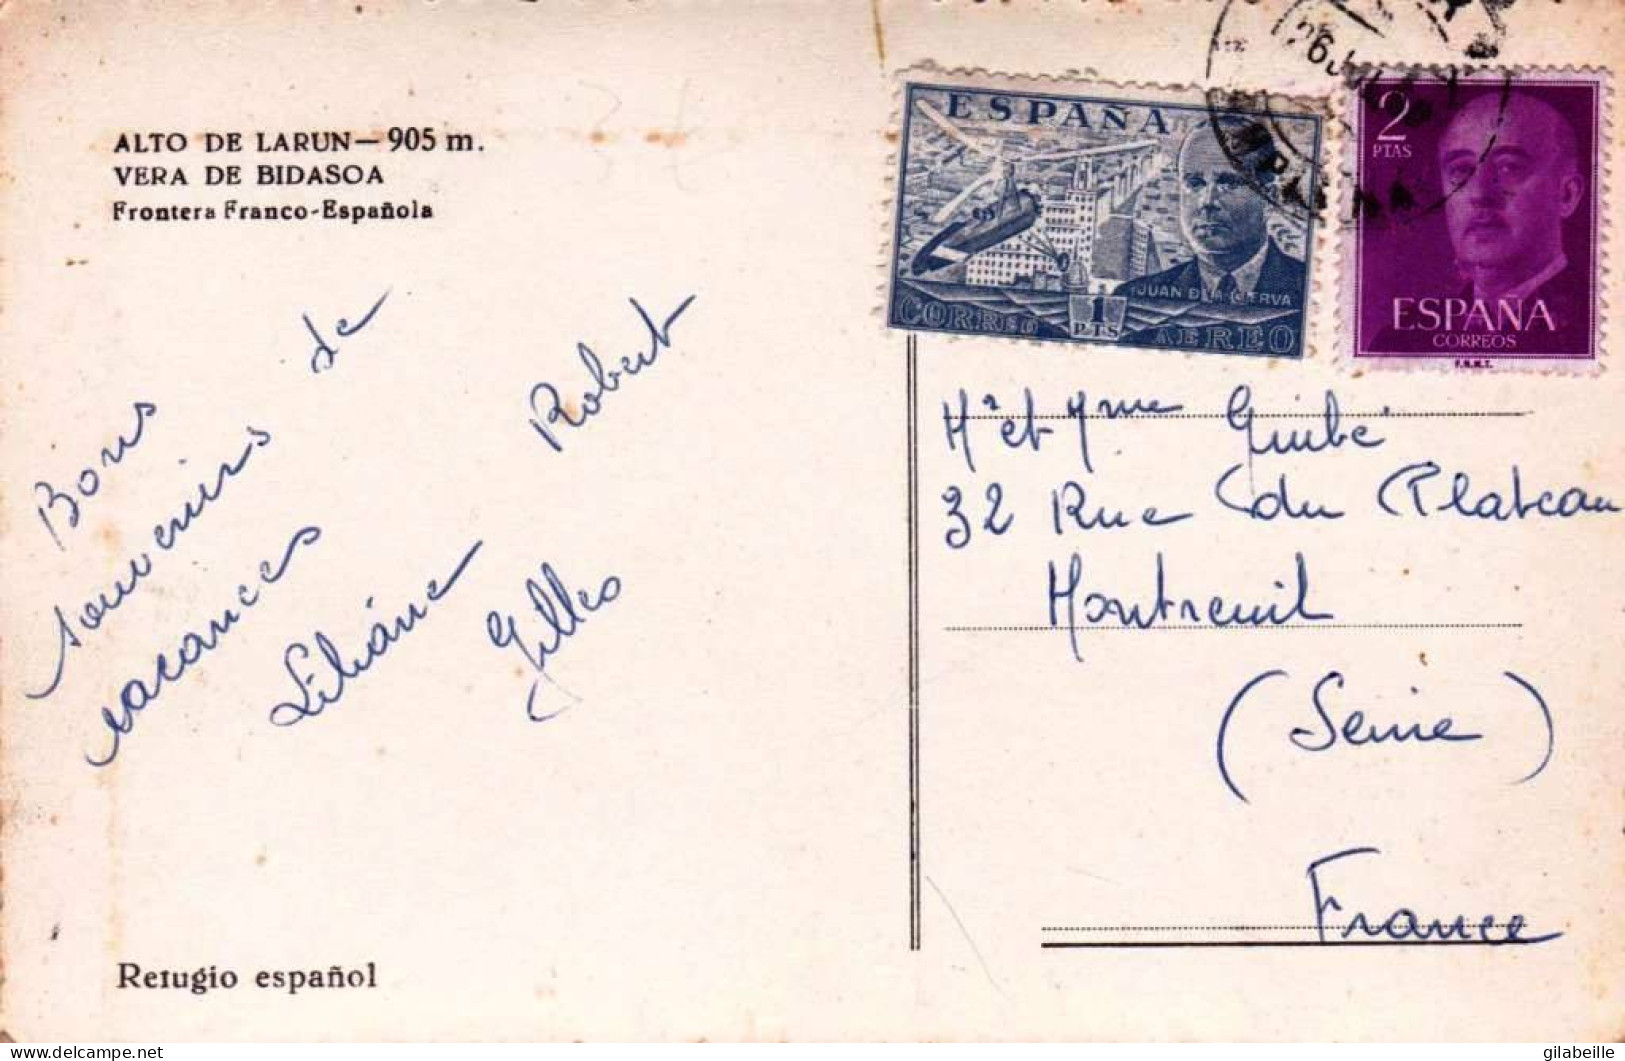 ALTO DE LARUN — 905 m.
VERA DE BIDASOA
Frontera Franco-Española
Bons
souvenirs de
vacances
Liliane Robert
Gilles
Refugio español
ESPAÑA
JUAN DE LA CIERVA
1
PTS
CORREO AEREO
2
PTAS
ESPAÑA
CORREOS
F.N.M.T.
26 JUL
ESPAÑA
Mr et Mme Guibé
32 Rue du Plateau
Montreuil
(Seine)
France
gilabeille